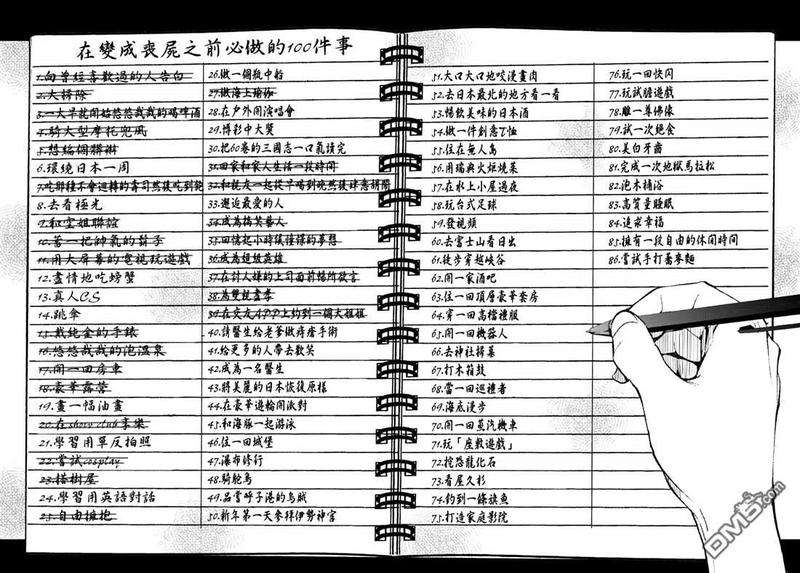 在變成喪屍之前必做的100件事
1.向曾經喜歡過的人告白
2.大掃除
3.一大早就開始悠悠哉哉的喝啤酒
4.騎大型摩托兜風
5.想給個辮
6.環繞日本一周
7.吃那種不會迴轉的壽司然後吃到飽
8.去看極光
9.和空姐聯誼
10.蓄一把帥氣的鬍子
11.用大屏幕的電視玩遊戲
12.盡情地吃螃蟹
13.真人CS
14.跳傘
15.戴純金的手錶
16.悠悠哉哉的泡溫泉
17.開一回房車
18.豪華露營
19.畫一幅油畫
20.在show club享樂
21.學習用單反拍照
22.嘗試cosplay
23.搭樹屋
24.學習用英語對話
25.自由擁抱
26.做一個瓶中船
27.做海上瑜伽
28.在戶外開演唱會
29.博彩中大獎
30.把60卷的三國志一口氣讀完
31.回家和家人生活一段時間
32.和親友一起從早喝到晚然後肆意胡鬧
33.邂逅最愛的人
34.成為搞笑藝人
35.回憶起小時候憧憬的夢想
36.成為超級英雄
37.在討人嫌的上司面前暢所欲言
38.為雙親盡孝
39.在交友APP上約到一個大姐姐
40.請醫生給老爹做痔瘡手術
41.給更多的人帶去歡笑
42.成為一名醫生
43.將美麗的日本恢復原樣
44.在豪華遊輪開派對
45.和海豚一起游泳
46.住一回城堡
47.瀑布修行
48.騎鴕鳥
49.品嘗呼子港的烏賊
50.新年第一天參拜伊勢神宮
51.大口大口地咬漫畫肉
52.去日本最北的地方看一看
53.暢飲美味的日本酒
54.做一件創意T恤
55.住在無人島
56.用瑞典火炬燒菜
57.在水上小屋過夜
58.玩台式足球
59.發視頻
60.去富士山看日出
61.徒步穿越峽谷
62.開一家酒吧
63.住一回頂層豪華套房
64.穿一回高檔禮服
65.開一回機器人
66.去神社掃墓
67.打木箱鼓
68.當一回巡禮者
69.海底漫步
70.開一回蒸汽機車
71.玩「座敷遊戲」
72.挖恐龍化石
73.看屋久杉
74.釣到一條旗魚
75.打造家庭影院
76.玩一回快閃
77.玩試膽遊戲
78.雕一尊佛像
79.試一次絕食
80.美白牙齒
81.完成一次地獄馬拉松
82.泡木桶浴
83.高質量睡眠
84.追求幸福
85.擁有一段自由的休閒時間
86.嘗試手打蕎麥麵
DM5.com